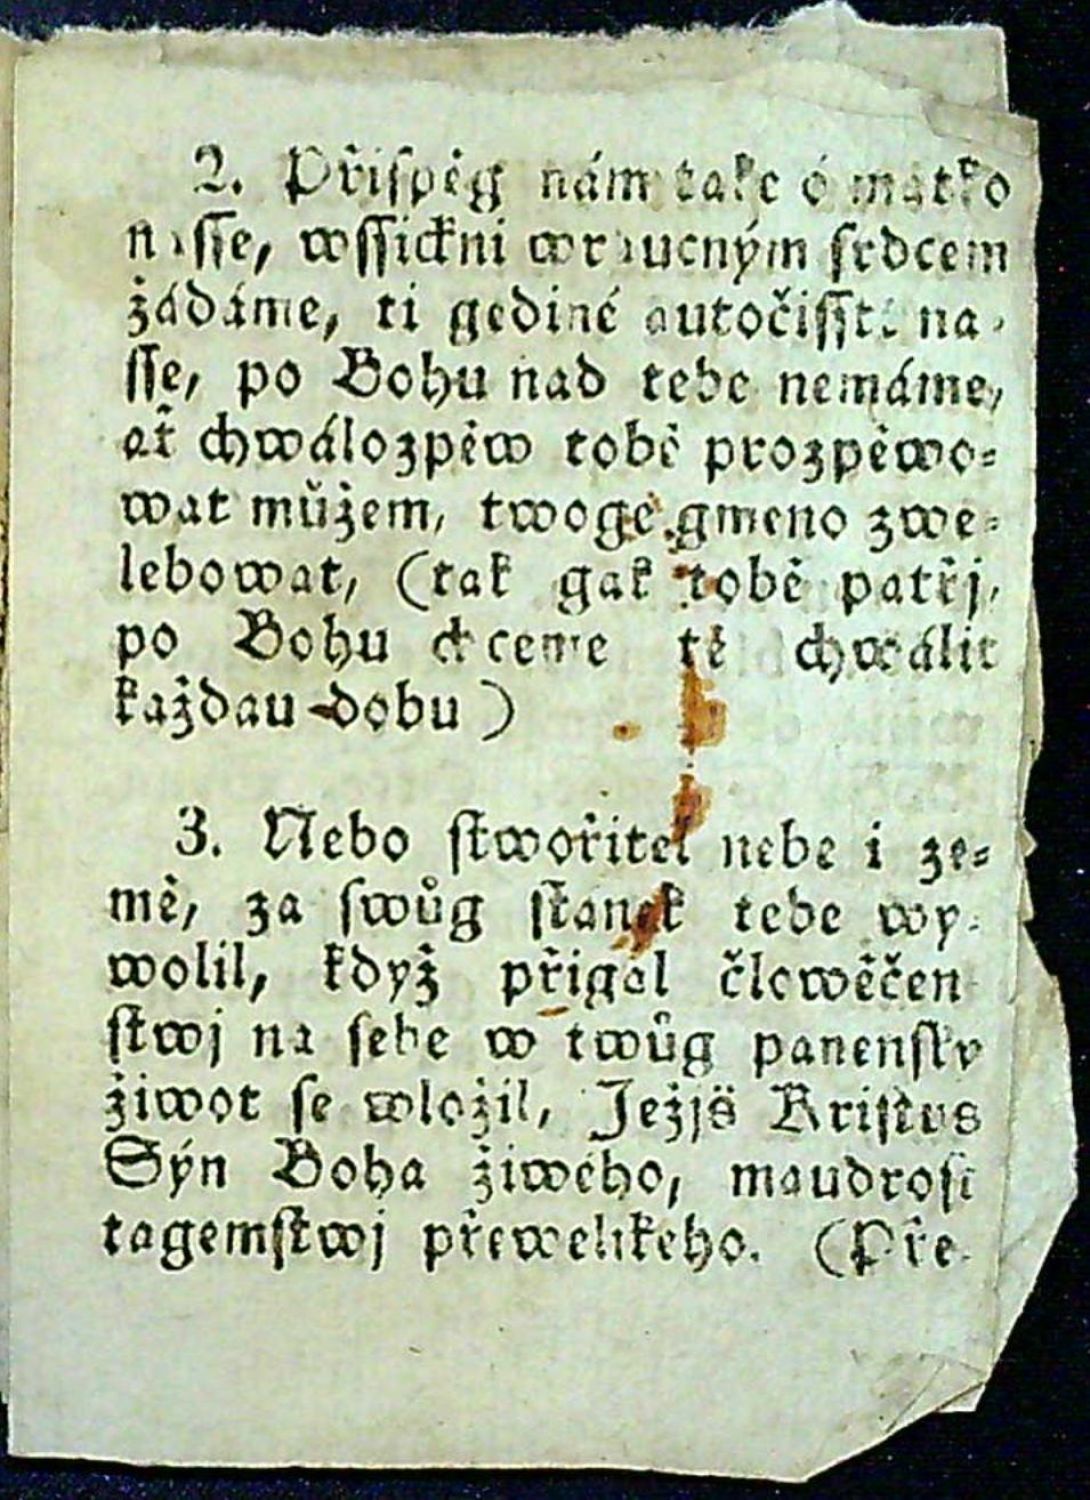 2. Přispěg nám take ó matko
nasse, wssickni wraucným srdcem
žádáme, ti gediné autočisste na-
sse, po Bohu nad tebe nemáme,
ať chwálozpěw tobě prozpěwo-
wat můžem, twoge gmeno zwe-
lebowat, (tak gak tobě patřj,
po Bohu chceme tě chwálit
každau dobu)
3. Nebo stwořitel nebe i ze-
mě, za swůg stanek tebe wy-
wolil, když přigal člověčen
stwj na sebe w twůg panensky
žiwot se wložil, Ježjš Kristus
Syn Boha žiwého, maudrost
tagemstwj přewelikeho. (Pře-